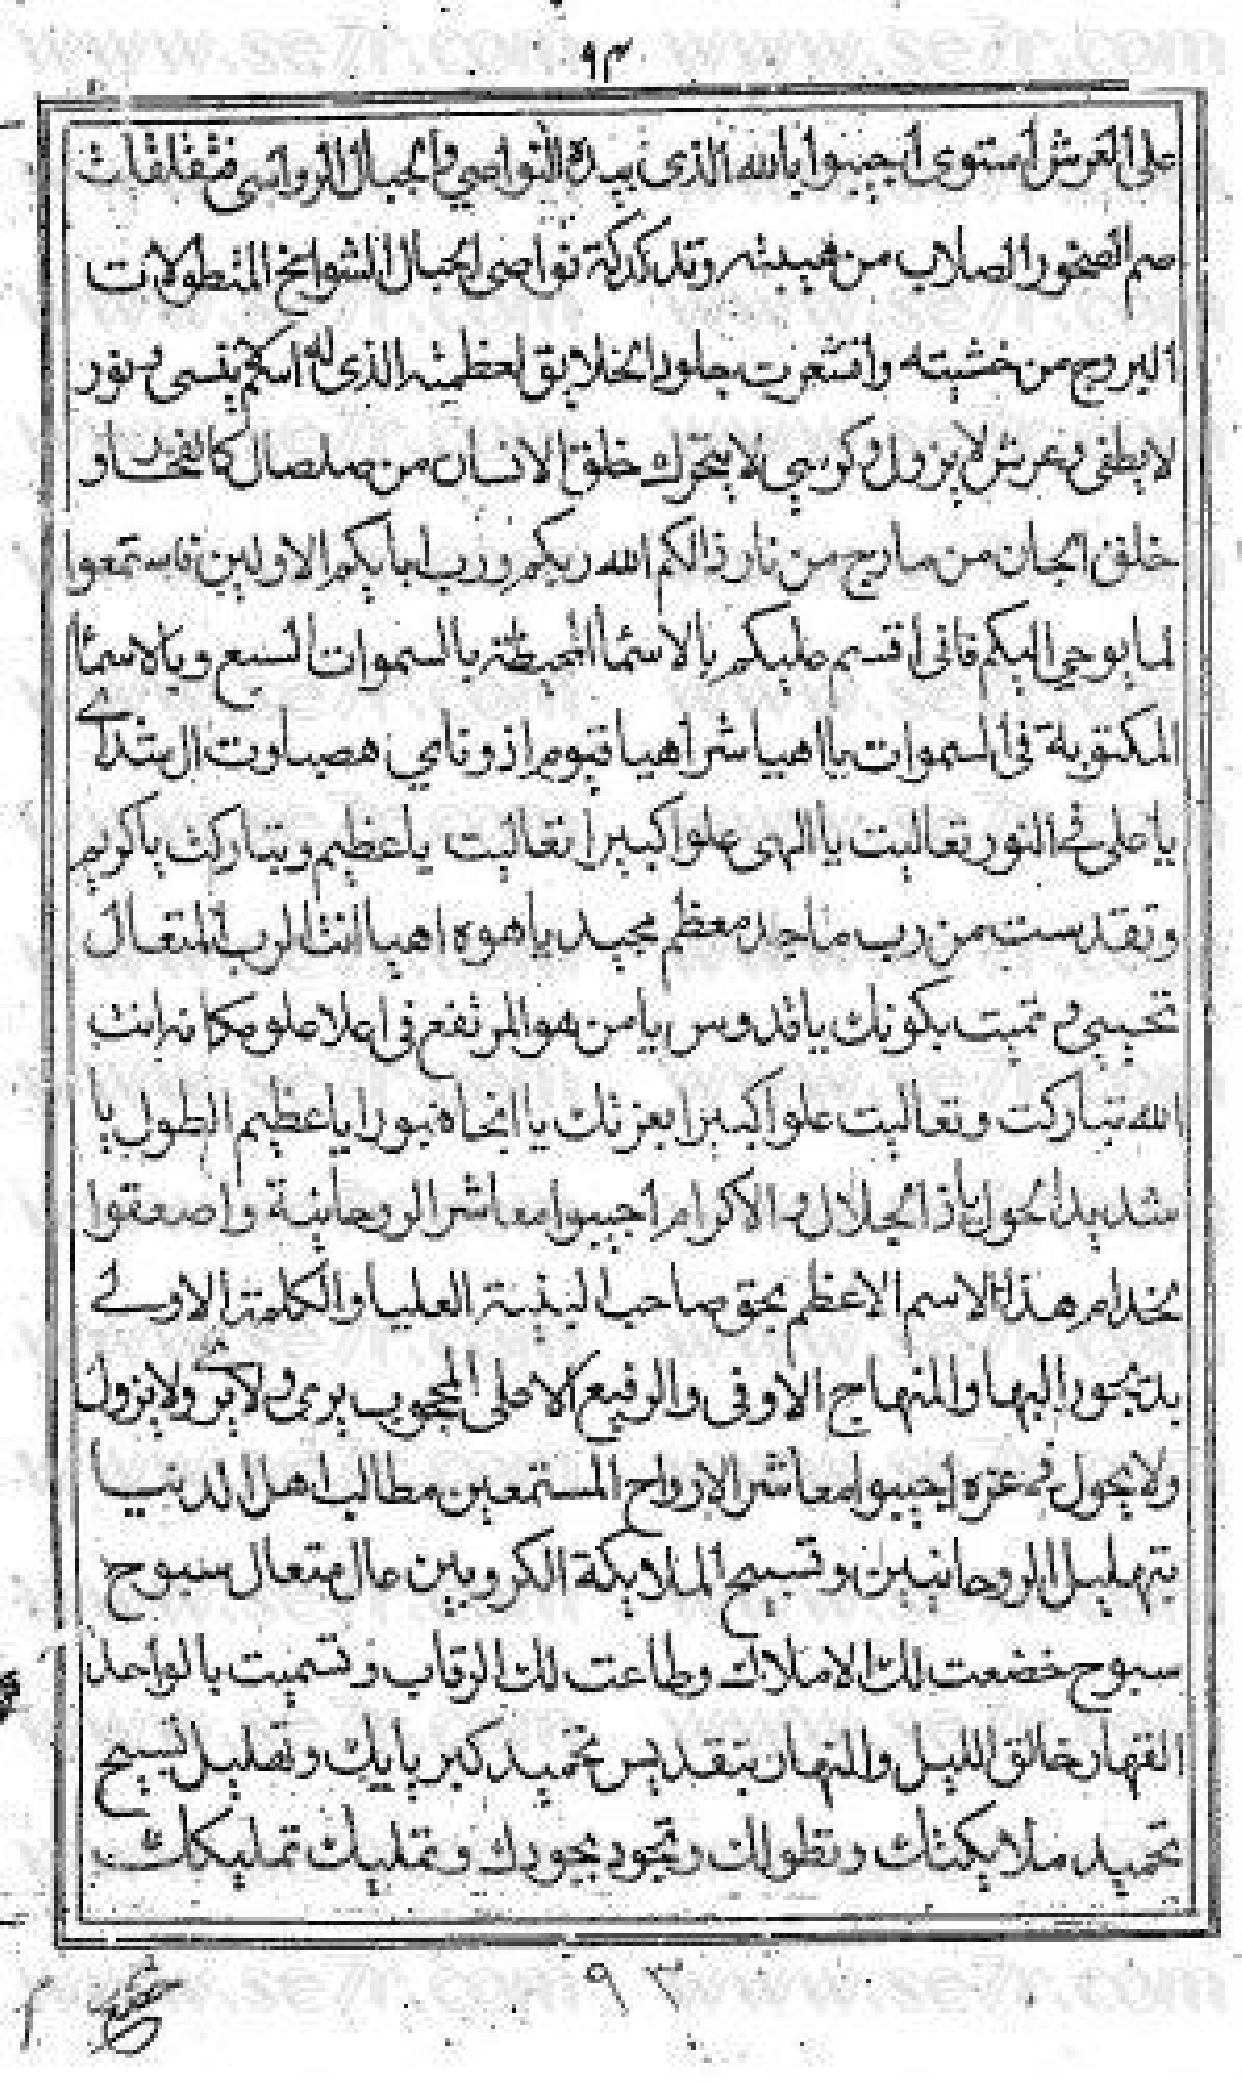 ٩٣
على العرش استوى اجيبوا بالله الذي بيده النواصي والجبال الرواسي فتفلقات
صم الصخور الصلاب من هيبته وتدكدكة نواصي الجبال الشوامخ المتطولات
البروج من خشيته واقشعرت جلود الخلايق لعظمته الذي له اسكم ينسى ونور
لا يطفى وعرش لا يزول وكرسي لا يتحرك خلق الانسان من صلصال كالفخار و
خلق الجان من مارج من نار ذالكم الله ربكم ورب ابايكم الاولين فاستمعوا
لما يوحي اليكم فاني اقسم عليكم بالاسما المحيطة بالسموات السبع وبالاسما
المكتوبة في السموات يا اهيا شراهيا قيوم ازوناي هصباوت ال شداي
يا على في النور تعاليت يا الهى علوا كبيرا تعاليت يا عظيم وتباركت يا كريم
وتقدست من رب ماجد معظم مجيد ياهوه اهيا انت الرب المتعال
تحيي وتميت بكونك يا قدوس يا من هو المرتفع في اعلا علو مكانه انت
الله تباركت وتعاليت علوا كبيرا بعزتك يا نورا يا عظيم الطول يا
شديد الحول يا ذا الجلال والاكرام اجيبوا معاشر الروحانية واصعقوا
بخدام هذا الاسم الاعظم بحق صاحب البنية العليا والكلمة الاولى
بديجور اليها والمنهاج الاوفى والرفيع الاعلى المحجوب يرى ولا يرى ولا يزول
ولا يحول في عزه اجيبوا معاشر الارواح المستمعين مطالب اهل الدنيا
بتهليل الروحانيين وتسبيح الملايكة الكروبين عال متعال سبوح
سبوح خضعت لك الاملاك وطاعت لك الرقاب وتسميت بالواحد
القهار خالق الليل والنهار بتقديس تحميد كبريايك وتهليل تسبيح
تحميد ملايكتك وتطولك وتجود بجودك وتمليك تمليكك
٩٣